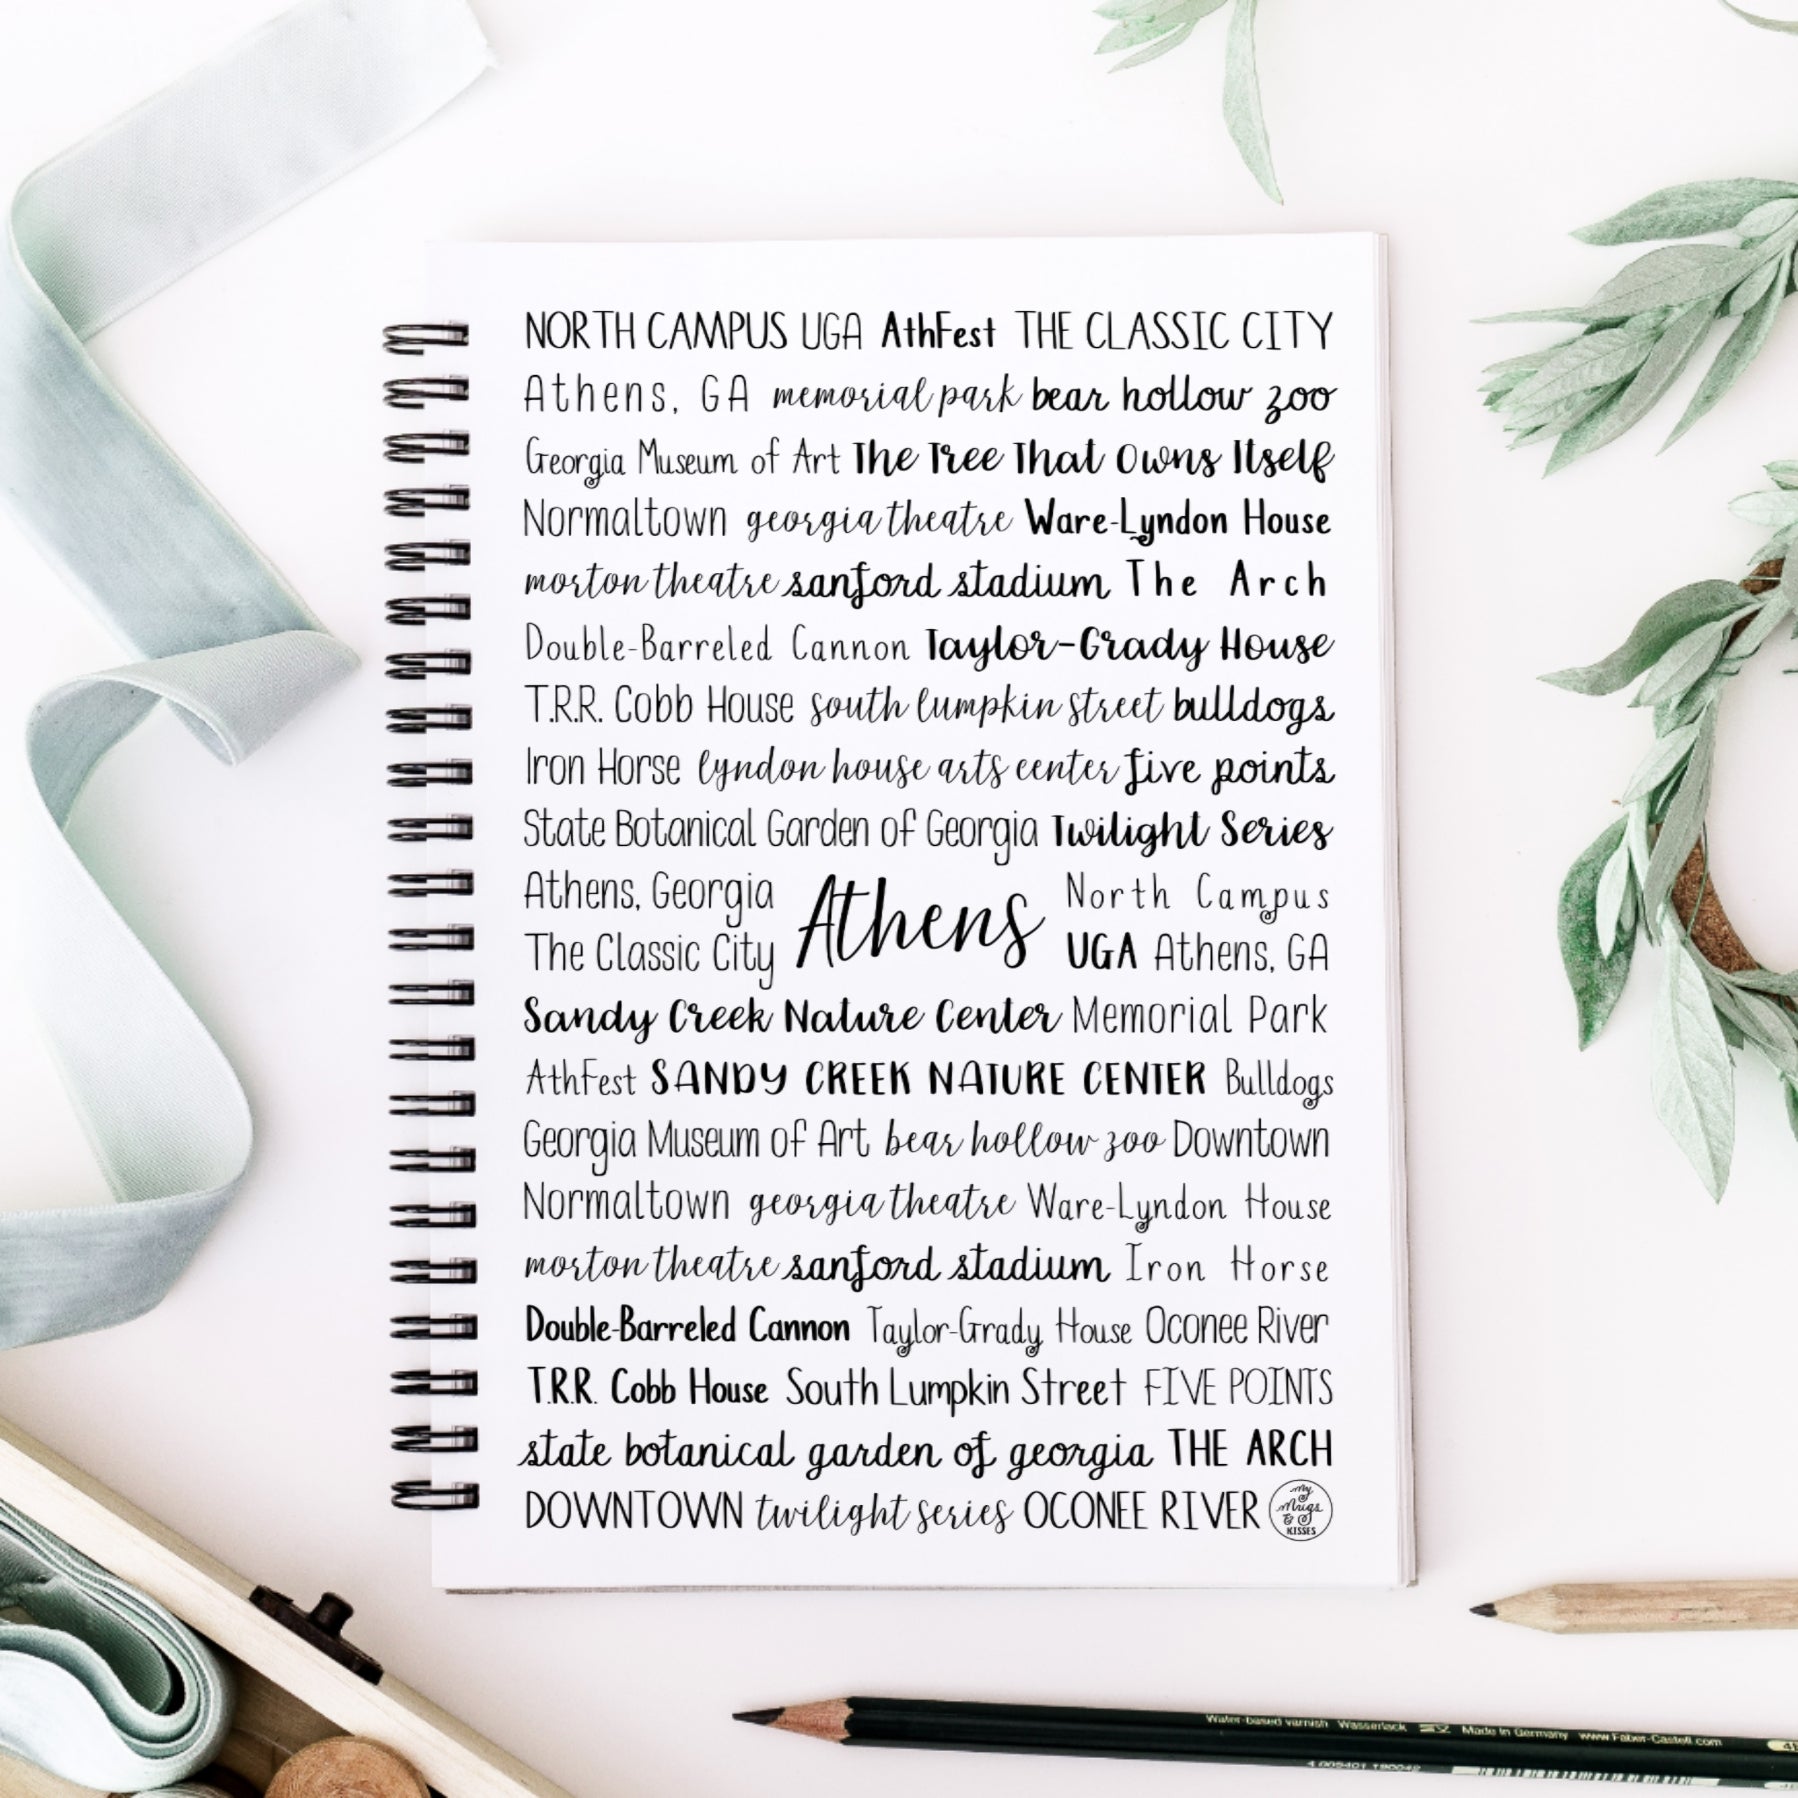 NORTH CAMPUS UGA AthFest THE CLASSIC CITY
Athens, GA memorial park bear hollow zoo
Georgia Museum of Art The Tree That Owns Itself
Normaltown georgia theatre Ware-Lyndon House
morton theatre sanford stadium The Arch
Double-Barreled Cannon Taylor-Grady House
T.R.R. Cobb House south lumpkin street bulldogs
Iron Horse lyndon house arts center five points
State Botanical Garden of Georgia Twilight Series
Athens, Georgia
The Classic City
Athens
North Campus
UGA Athens, GA
Sandy Creek Nature Center Memorial Park
AthFest SANDY CREEK NATURE CENTER Bulldogs
Georgia Museum of Art bear hollow zoo Downtown
Normaltown georgia theatre Ware-Lyndon House
morton theatre sanford stadium Iron Horse
Double-Barreled Cannon Taylor-Grady House Oconee River
T.R.R. Cobb House South Lumpkin Street FIVE POINTS
state botanical garden of georgia THE ARCH
DOWNTOWN twilight series OCONEE RIVER
My
Mugs
&
KISSES
Water-based varnish Wasserlack Made in Germany www.Faber-Castell.com
4 005401 190042